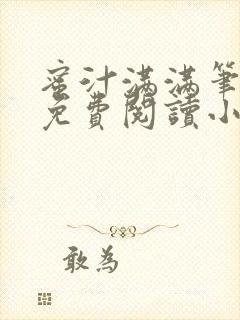 蜜汁满满筆
免費閱讀小
敢為